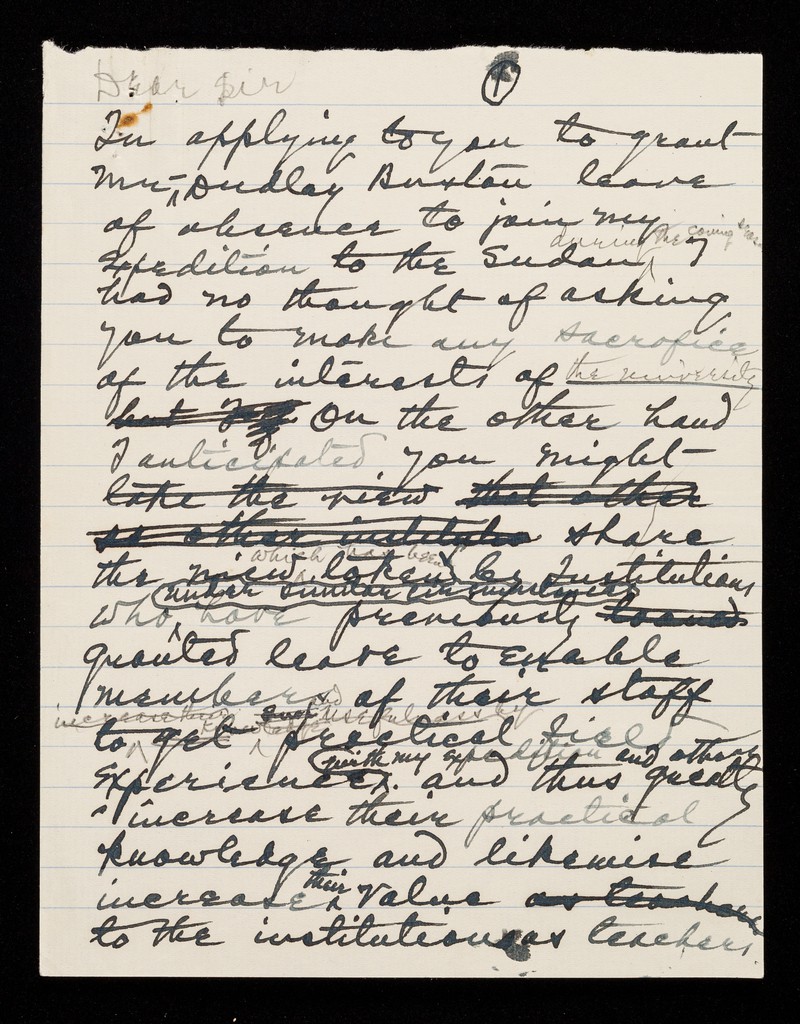 Dear Sir
1
In applying to you to grant
Mr. Dudley Buxton leave
of absence to join my
during the coming season
Expedition to the Sudan
had no thought of asking
you to make any sacrifice
of the interests of the university
but I On the other hand
I anticipated you might
take the view that other
so other institutio share
which has been
the view taken by Institutions
under similar circumstances
who have previously loaned
granted leave to enable
members of their staff
increase their usefulness by
to get practical field
with my expedition and others
experience. and thus greatly
increase their practical
knowledge and likewise
their
increase value as teachers
to the institutions as teachers